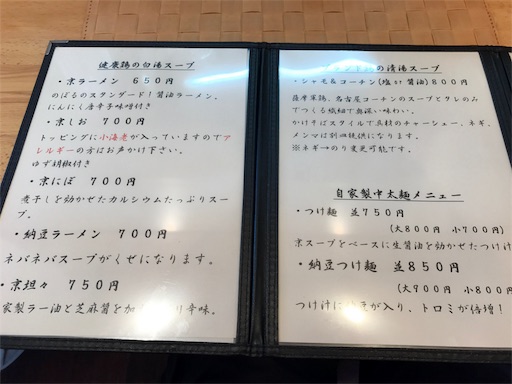 健康鶏の白湯スープ
・京ラーメン 650円
のばるのスタンダード!醤油ラーメン。
にんにく唐辛子味噌付き
・京しお 700円
トッピングに小海老が入っていますのでア
レルギーの方はお声かけ下さい。
ゆず胡椒付き
・京にぼ 700円
煮干しを効かせたカルシウムたっぷりスー
プ。
・納豆ラーメン 700円
ネバネバスープがくせになります。
・京坦々 750円
家製ラー油と芝麻醤を加 り辛味。
の清湯スープ
・シャモ&コーチン(塩or醤油)800円
薩摩軍鶏、名古屋コーチンのスープとタレのみ
でつくる繊細で奥深い味わい。
かけそばスタイルで具材のチャーシュー、ネギ、
メンマは別皿提供になります。
※ネギ→のり変更可能です。
自家製中太麺メニュー
・つけ麺 並750円
(大800円 小700円)
京スープをベースに生醤油を効かせたつけ汁
・納豆つけ麺 並850円
(大900円 小800
つけ汁に 豆が入り、トロミが倍増!